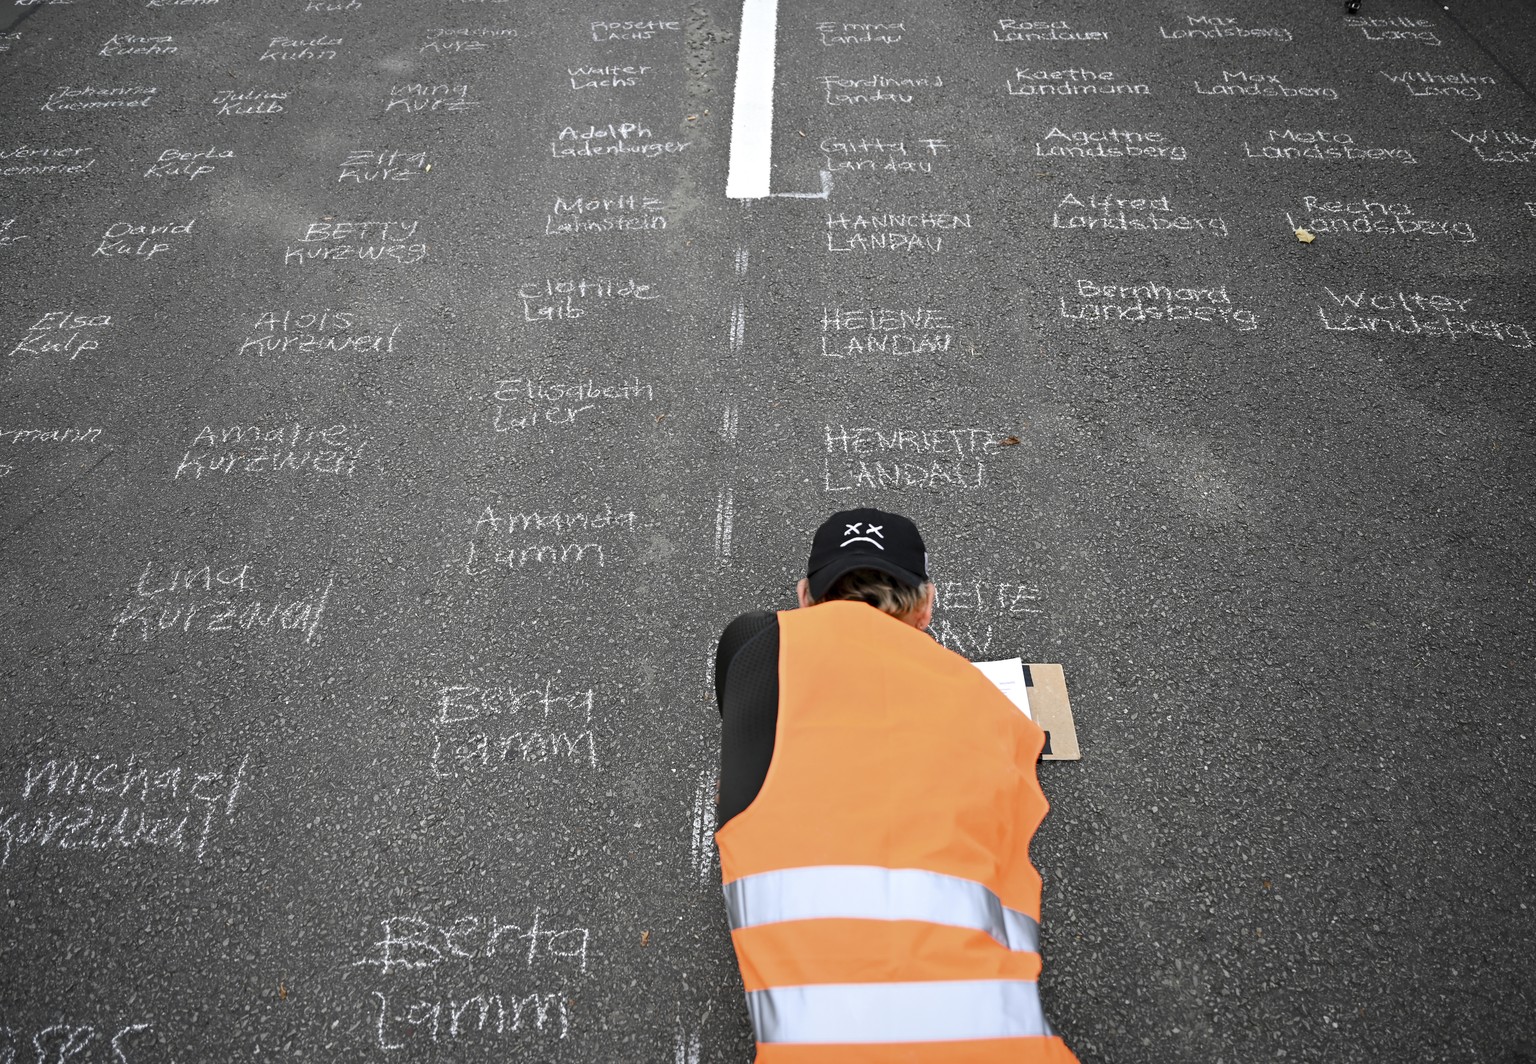 Kuh
Klara
Kuehn
Paula
Kuhn
Joachim
Kurz
Rosette
Lachs
Johanna
Kuemmel
Julius
Kulb
Kurz
Walter
Lachs
Berta
Kulp
Kurz
Adolph
Ladenburger
David
Kulp
BETTY
Kurzweg
Moritz
Lahnstein
Elsa
Kulp
Alois
Kurzweil
Clotilde
Laib
Amalie
Kurzweil
Elisabeth
Laier
Lina
Kurzweil
Amanda
Lamm
Michael
Kurzweil
Berta
Lamm
Berta
Lamm
Emma
Landau
Rosa
Landauer
Max
Landsberg
Lang
Ferdinand
Landau
Kaethe
Landmann
Max
Landsberg
Wilhelm
Lang
Gitta F
Landau
Agathe
Landsberg
Meta
Landsberg
HANNCHEN
LANDAU
Alfred
Landsberg
Recha
Landsberg
HELENE
LANDAU
Bernhard
Landsberg
Walter
Landsberg
HENRIETTE
LANDAU